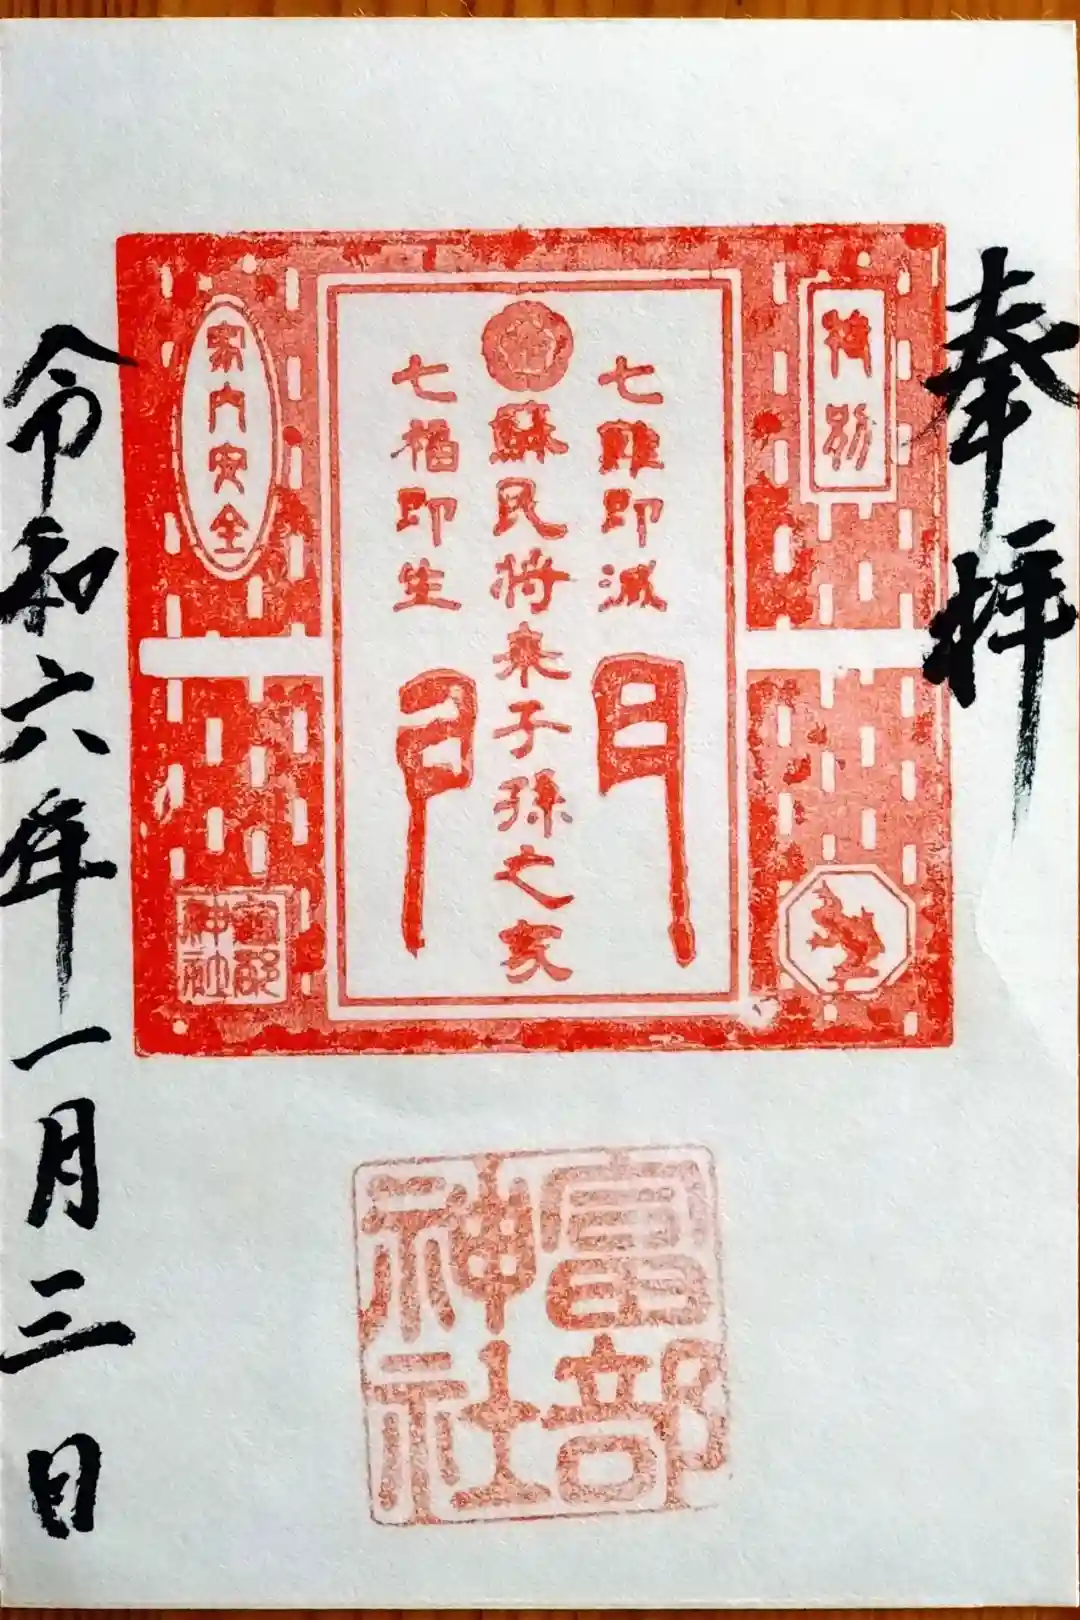 奉拝
特別
七難即滅
蘇民将来子孫之家
七福即生
門
家内安全
富部神社
富部神社
令和六年一月三日